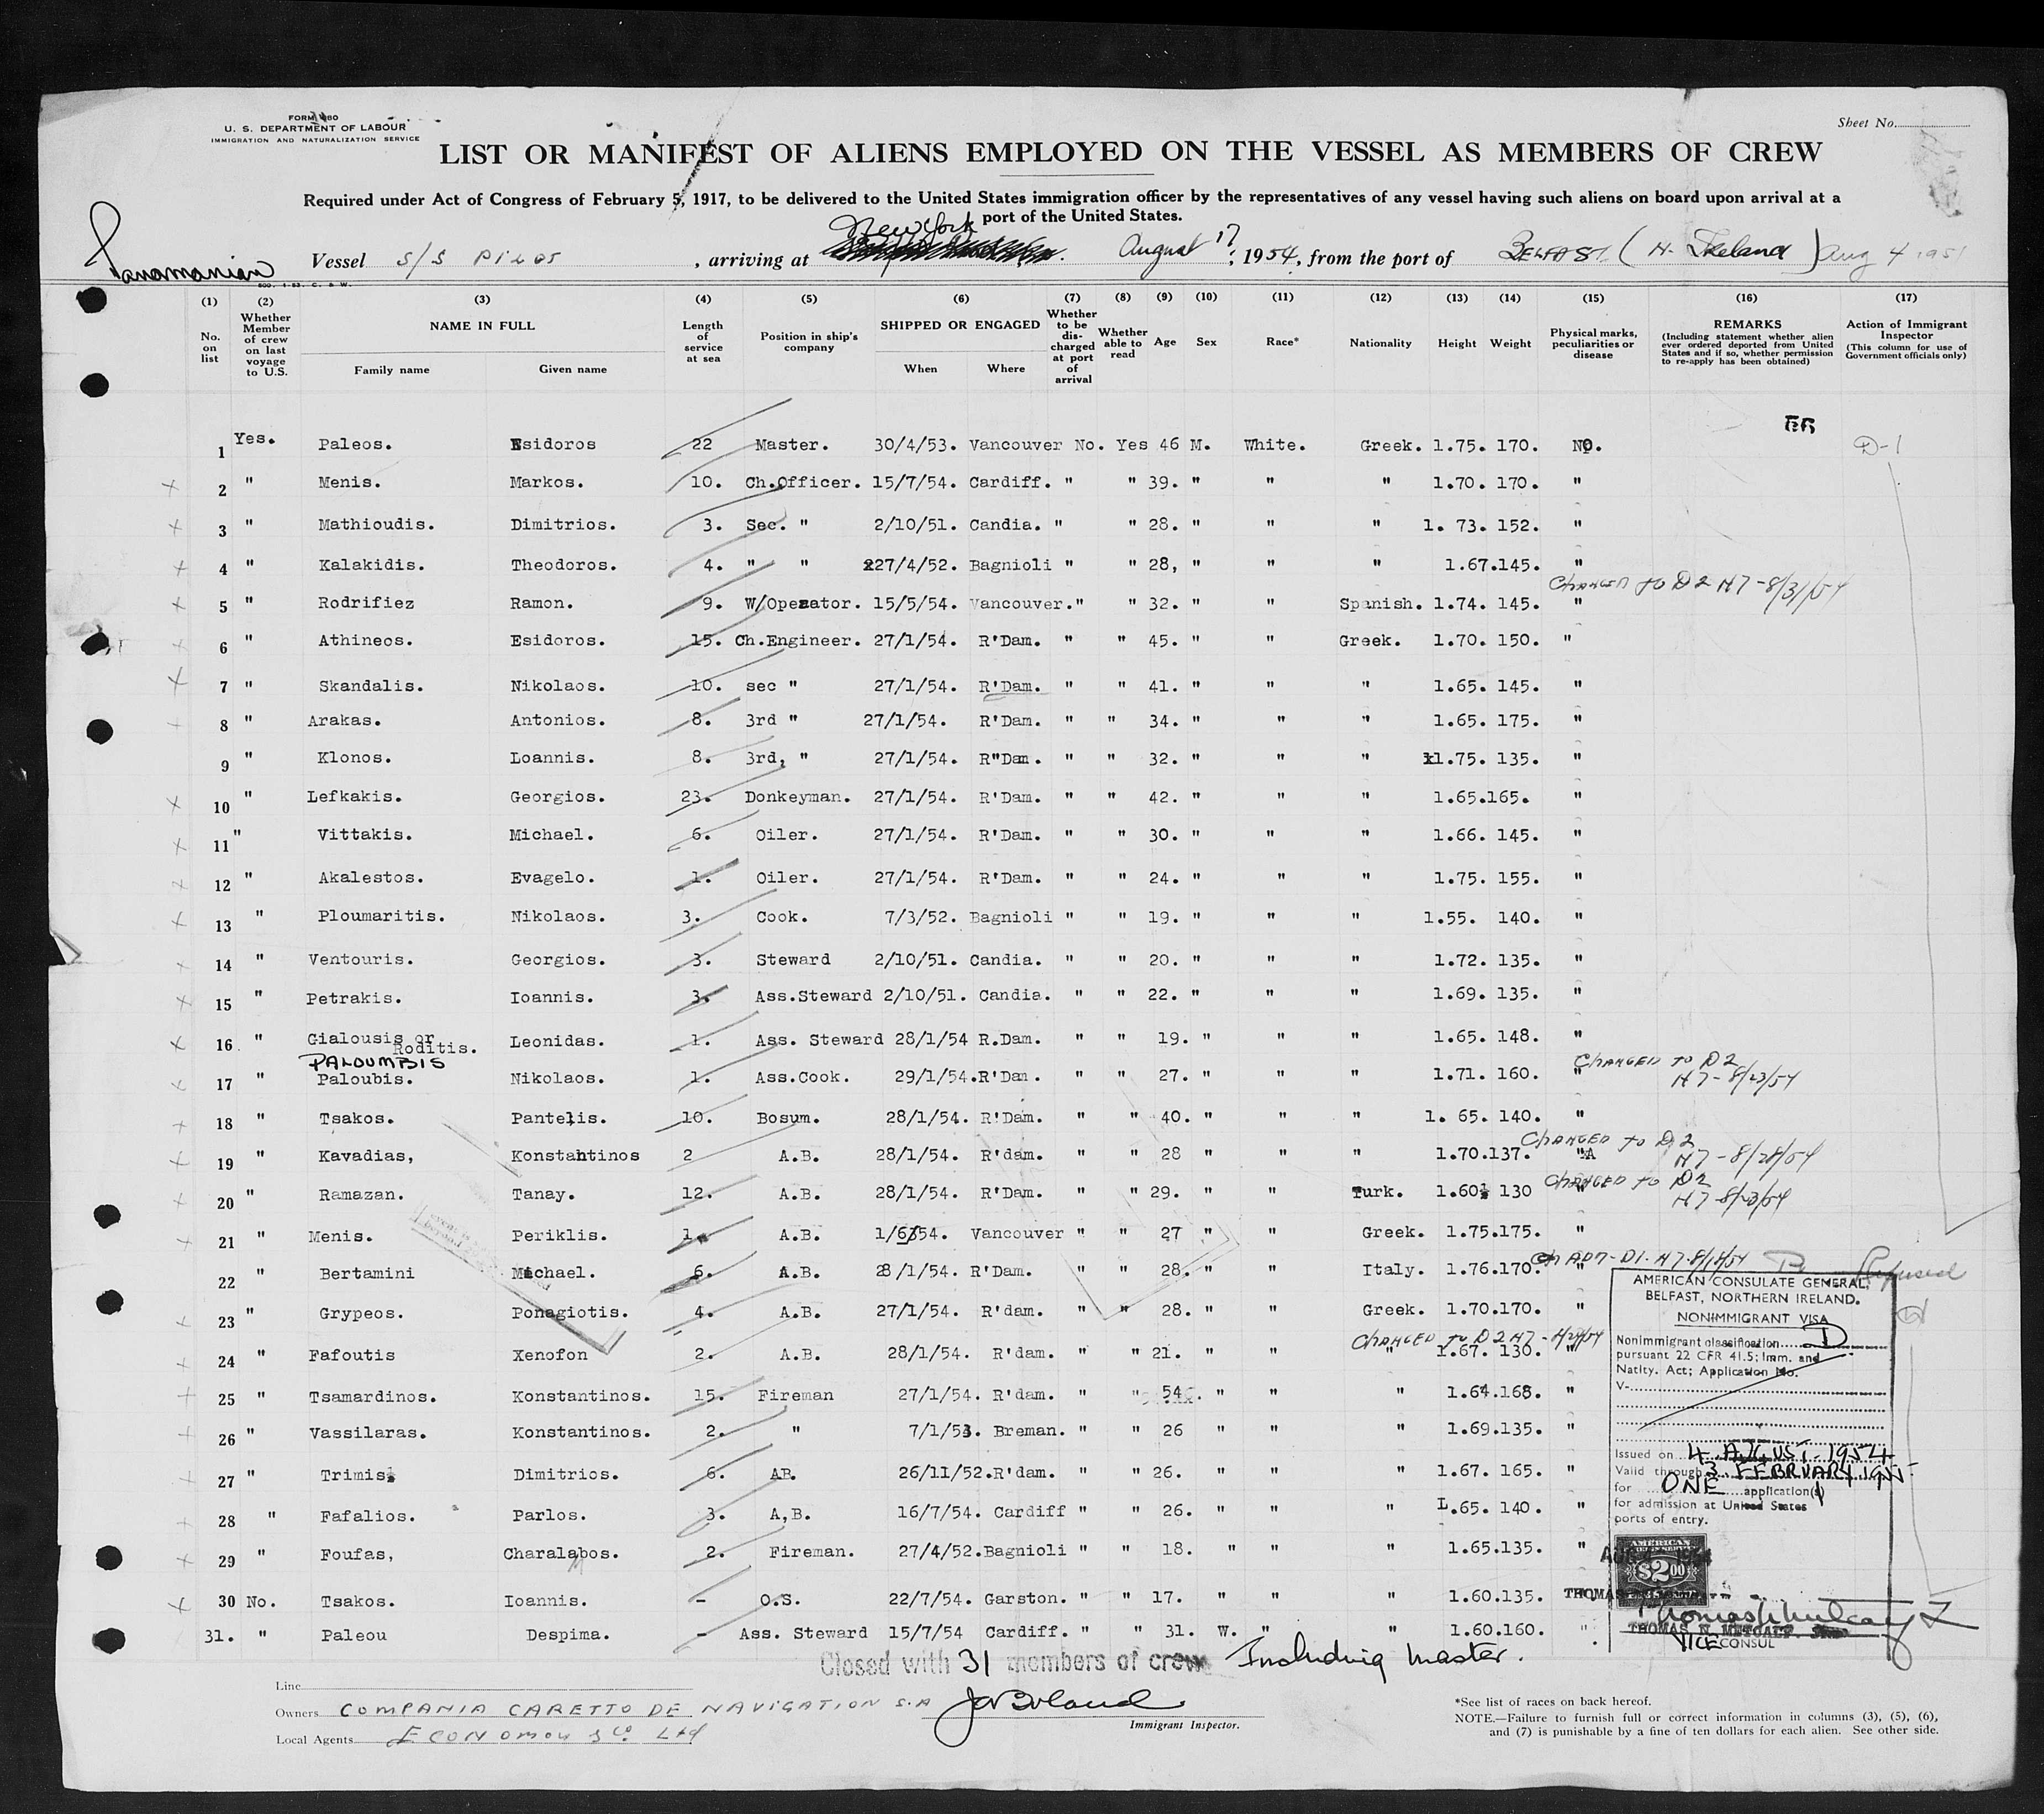 FORM 680
U. S. DEPARTMENT OF LABOUR
IMMIGRATION AND NATURALIZATION SERVICE
Sheet No.
LIST OR MANIFEST OF ALIENS EMPLOYED ON THE VESSEL AS MEMBERS OF CREW
Required under Act of Congress of February 5, 1917, to be delivered to the United States immigration officer by the representatives of any vessel having such aliens on board upon arrival at a
port of the United States.
Panamanian Vessel S/S Pilos, arriving at New York August 17, 1954, from the port of BELFAST (N. Ireland) Aug 4 1954
(1) (2) (3) (4) (5) (6) (7) (8) (9) (10) (11) (12) (13) (14) (15) (16) (17)
No. on list
Whether Member of crew on last voyage to U.S.
NAME IN FULL
Family name Given name
Length of service at sea
Position in ship's company
SHIPPED OR ENGAGED
When Where
Whether to be discharged at port of arrival
Whether able to read
Age Sex Race* Nationality Height Weight
Physical marks, peculiarities or disease
REMARKS
(Including statement whether alien ever ordered deported from United States and if so, whether permission to re-apply has been obtained)
Action of Immigrant Inspector
(This column for use of Government officials only)
1 Yes. Paleos. Esidoros 22 Master. 30/4/53. Vancouver No. Yes 46 M. White. Greek. 1.75. 170. NO. D-1
2 " Menis. Markos. 10. Ch.Officer. 15/7/54. Cardiff. " " 39. " " " 1.70. 170. "
3 " Mathioudis. Dimitrios. 3. Sec. " 2/10/51. Candia. " " 28. " " " 1. 73. 152. "
4 " Kalakidis. Theodoros. 4. " " 27/4/52. Bagnioli " " 28, " " " 1.67.145. "
CHANGED TO D2 H7-8/31/54
5 " Rodrifiez Ramon. 9. W/Operator. 15/5/54. Vancouver. " " 32. " " Spanish. 1.74. 145. "
6 " Athineos. Esidoros. 15. Ch.Engineer. 27/1/54. R'Dam. " " 45. " " Greek. 1.70. 150. "
7 " Skandalis. Nikolaos. 10. sec " 27/1/54. R'Dam. " " 41. " " " 1.65. 145. "
8 " Arakas. Antonios. 8. 3rd " 27/1/54. R'Dam. " " 34. " " " 1.65. 175. "
9 " Klonos. Loannis. 8. 3rd, " 27/1/54. R"Dam. " " 32. " " " 1.75. 135. "
10 " Lefkakis. Georgios. 23. Donkeyman. 27/1/54. R'Dam. " " 42. " " " 1.65.165. "
11 " Vittakis. Michael. 6. Oiler. 27/1/54. R'Dam. " " 30. " " " 1.66. 145. "
12 " Akalestos. Evagelo. 1. Oiler. 27/1/54. R'Dam. " " 24. " " " 1.75. 155. "
13 " Ploumaritis. Nikolaos. 3. Cook. 7/3/52. Bagnioli " " 19. " " " 1.55. 140. "
14 " Ventouris. Georgios. 3. Steward 2/10/51. Candia. " " 20. " " " 1.72. 135. "
15 " Petrakis. Ioannis. 3. Ass.Steward 2/10/51. Candia. " " 22. " " " 1.69. 135. "
16 " Gialousis or Roditis. Leonidas. 1. Ass. Steward 28/1/54 R.Dam. " " 19. " " " 1.65. 148. "
PALOUMBIS CHANGED TO D2 H7-8/23/54
17 " Paloubis. Nikolaos. 1. Ass.Cook. 29/1/54.R'Dam. " " 27. " " " 1.71. 160. "
18 " Tsakos. Pantelis. 10. Bosum. 28/1/54. R'Dam. " " 40. " " " 1. 65. 140. "
CHANGED TO D2 H7-8/28/54
19 " Kavadias, Konstantinos 2 A.B. 28/1/54. R'dam. " " 28 " " " 1.70.137. "
CHANGED TO D2 H7-8/23/54
20 " Ramazan. Tanay. 12. A.B. 28/1/54. R'Dam. " " 29. " " Turk. 1.60½ 130 "
21 " Menis. Periklis. 1. A.B. 1/6/54. Vancouver " " 27 " " Greek. 1.75.175. "
22 " Bertamini Michael. 6. A.B. 28/1/54. R'Dam. " " 28. " " Italy. 1.76.170. " Refused
23 " Grypeos. Ponagiotis. 4. A.B. 27/1/54. R'dam. " " 28. " " Greek. 1.70.170. "
CHANGED TO D2 H7
24 " Fafoutis Xenofon 2. A.B. 28/1/54. R'dam. " " 21. " " " 1.67. 130. "
25 " Tsamardinos. Konstantinos. 15. Fireman 27/1/54. R'dam. " " 54 " " " 1.64.168. "
26 " Vassilaras. Konstantinos. 2. " 7/1/53. Breman. " " 26 " " " 1.69.135. "
27 " Trimis Dimitrios. 6. AB. 26/11/52.R'dam. " " 26. " " " 1.67. 165. "
28 " Fafalios. Parlos. 3. A,B. 16/7/54. Cardiff " " 26. " " " 1.65. 140. "
29 " Foufas, Charalabos. 2. Fireman. 27/4/52.Bagnioli " " 18. " " " 1.65.135. "
30 No. Tsakos. Ioannis. - O.S. 22/7/54. Garston. " " 17. " " " 1.60.135.
31. " Paleou Despima. - Ass. Steward 15/7/54 Cardiff. " " 31. W. " " 1.60.160. "
AMERICAN CONSULATE GENERAL,
BELFAST, NORTHERN IRELAND.
NONIMMIGRANT VISA
Nonimmigrant classification D
pursuant 22 CFR 41.5; Imm. and
Natlty. Act; Application No.
V-
Issued on 4 AUGUST 1954
Valid through 3 FEBRUARY 1955
for ONE application(s)
for admission at United States
ports of entry.
AMERICAN
$2.00
THOMAS N. METCALF
VICE CONSUL
Closed with 31 members of crew Including Master.
Line
Owners COMPANIA CARETTO DE NAVIGATION S.A
Local Agents ECONOMOU & Co. Ltd
Immigrant Inspector.
*See list of races on back hereof.
NOTE.—Failure to furnish full or correct information in columns (3), (5), (6),
and (7) is punishable by a fine of ten dollars for each alien. See other side.